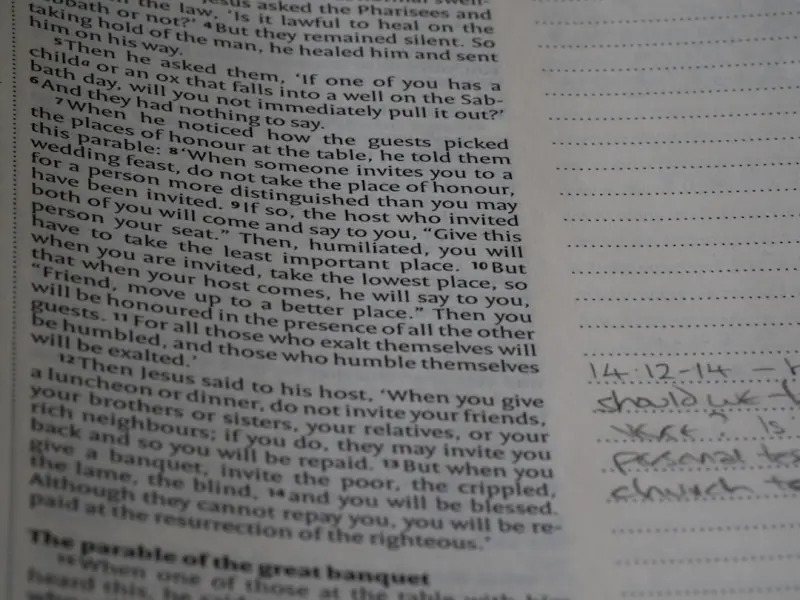 Jesus asked the Pharisees and
the law, ‘Is it lawful to heal on the
Sabbath or not?’ ⁴ But they remained silent. So
taking hold of the man, he healed him and sent
him on his way.
⁵ Then he asked them, ‘If one of you has a
childᵃ or an ox that falls into a well on the Sab-
bath day, will you not immediately pull it out?’
⁶ And they had nothing to say.
⁷ When he noticed how the guests picked
the places of honour at the table, he told them
this parable: ⁸ ‘When someone invites you to a
wedding feast, do not take the place of honour,
for a person more distinguished than you may
have been invited. ⁹ If so, the host who invited
both of you will come and say to you, “Give this
person your seat.” Then, humiliated, you will
have to take the least important place. ¹⁰ But
when you are invited, take the lowest place, so
that when your host comes, he will say to you,
“Friend, move up to a better place.” Then you
will be honoured in the presence of all the other
guests. ¹¹ For all those who exalt themselves will
be humbled, and those who humble themselves
will be exalted.’
¹² Then Jesus said to his host, ‘When you give
a luncheon or dinner, do not invite your friends,
your brothers or sisters, your relatives, or your
rich neighbours; if you do, they may invite you
back and so you will be repaid. ¹³ But when you
give a banquet, invite the poor, the crippled,
the lame, the blind, ¹⁴ and you will be blessed.
Although they cannot repay you, you will be re-
paid at the resurrection of the righteous.’
The parable of the great banquet
¹⁵ When one of those at the table with him
heard this, he said
14:12-14 –
should we
verse? Is
personal
church